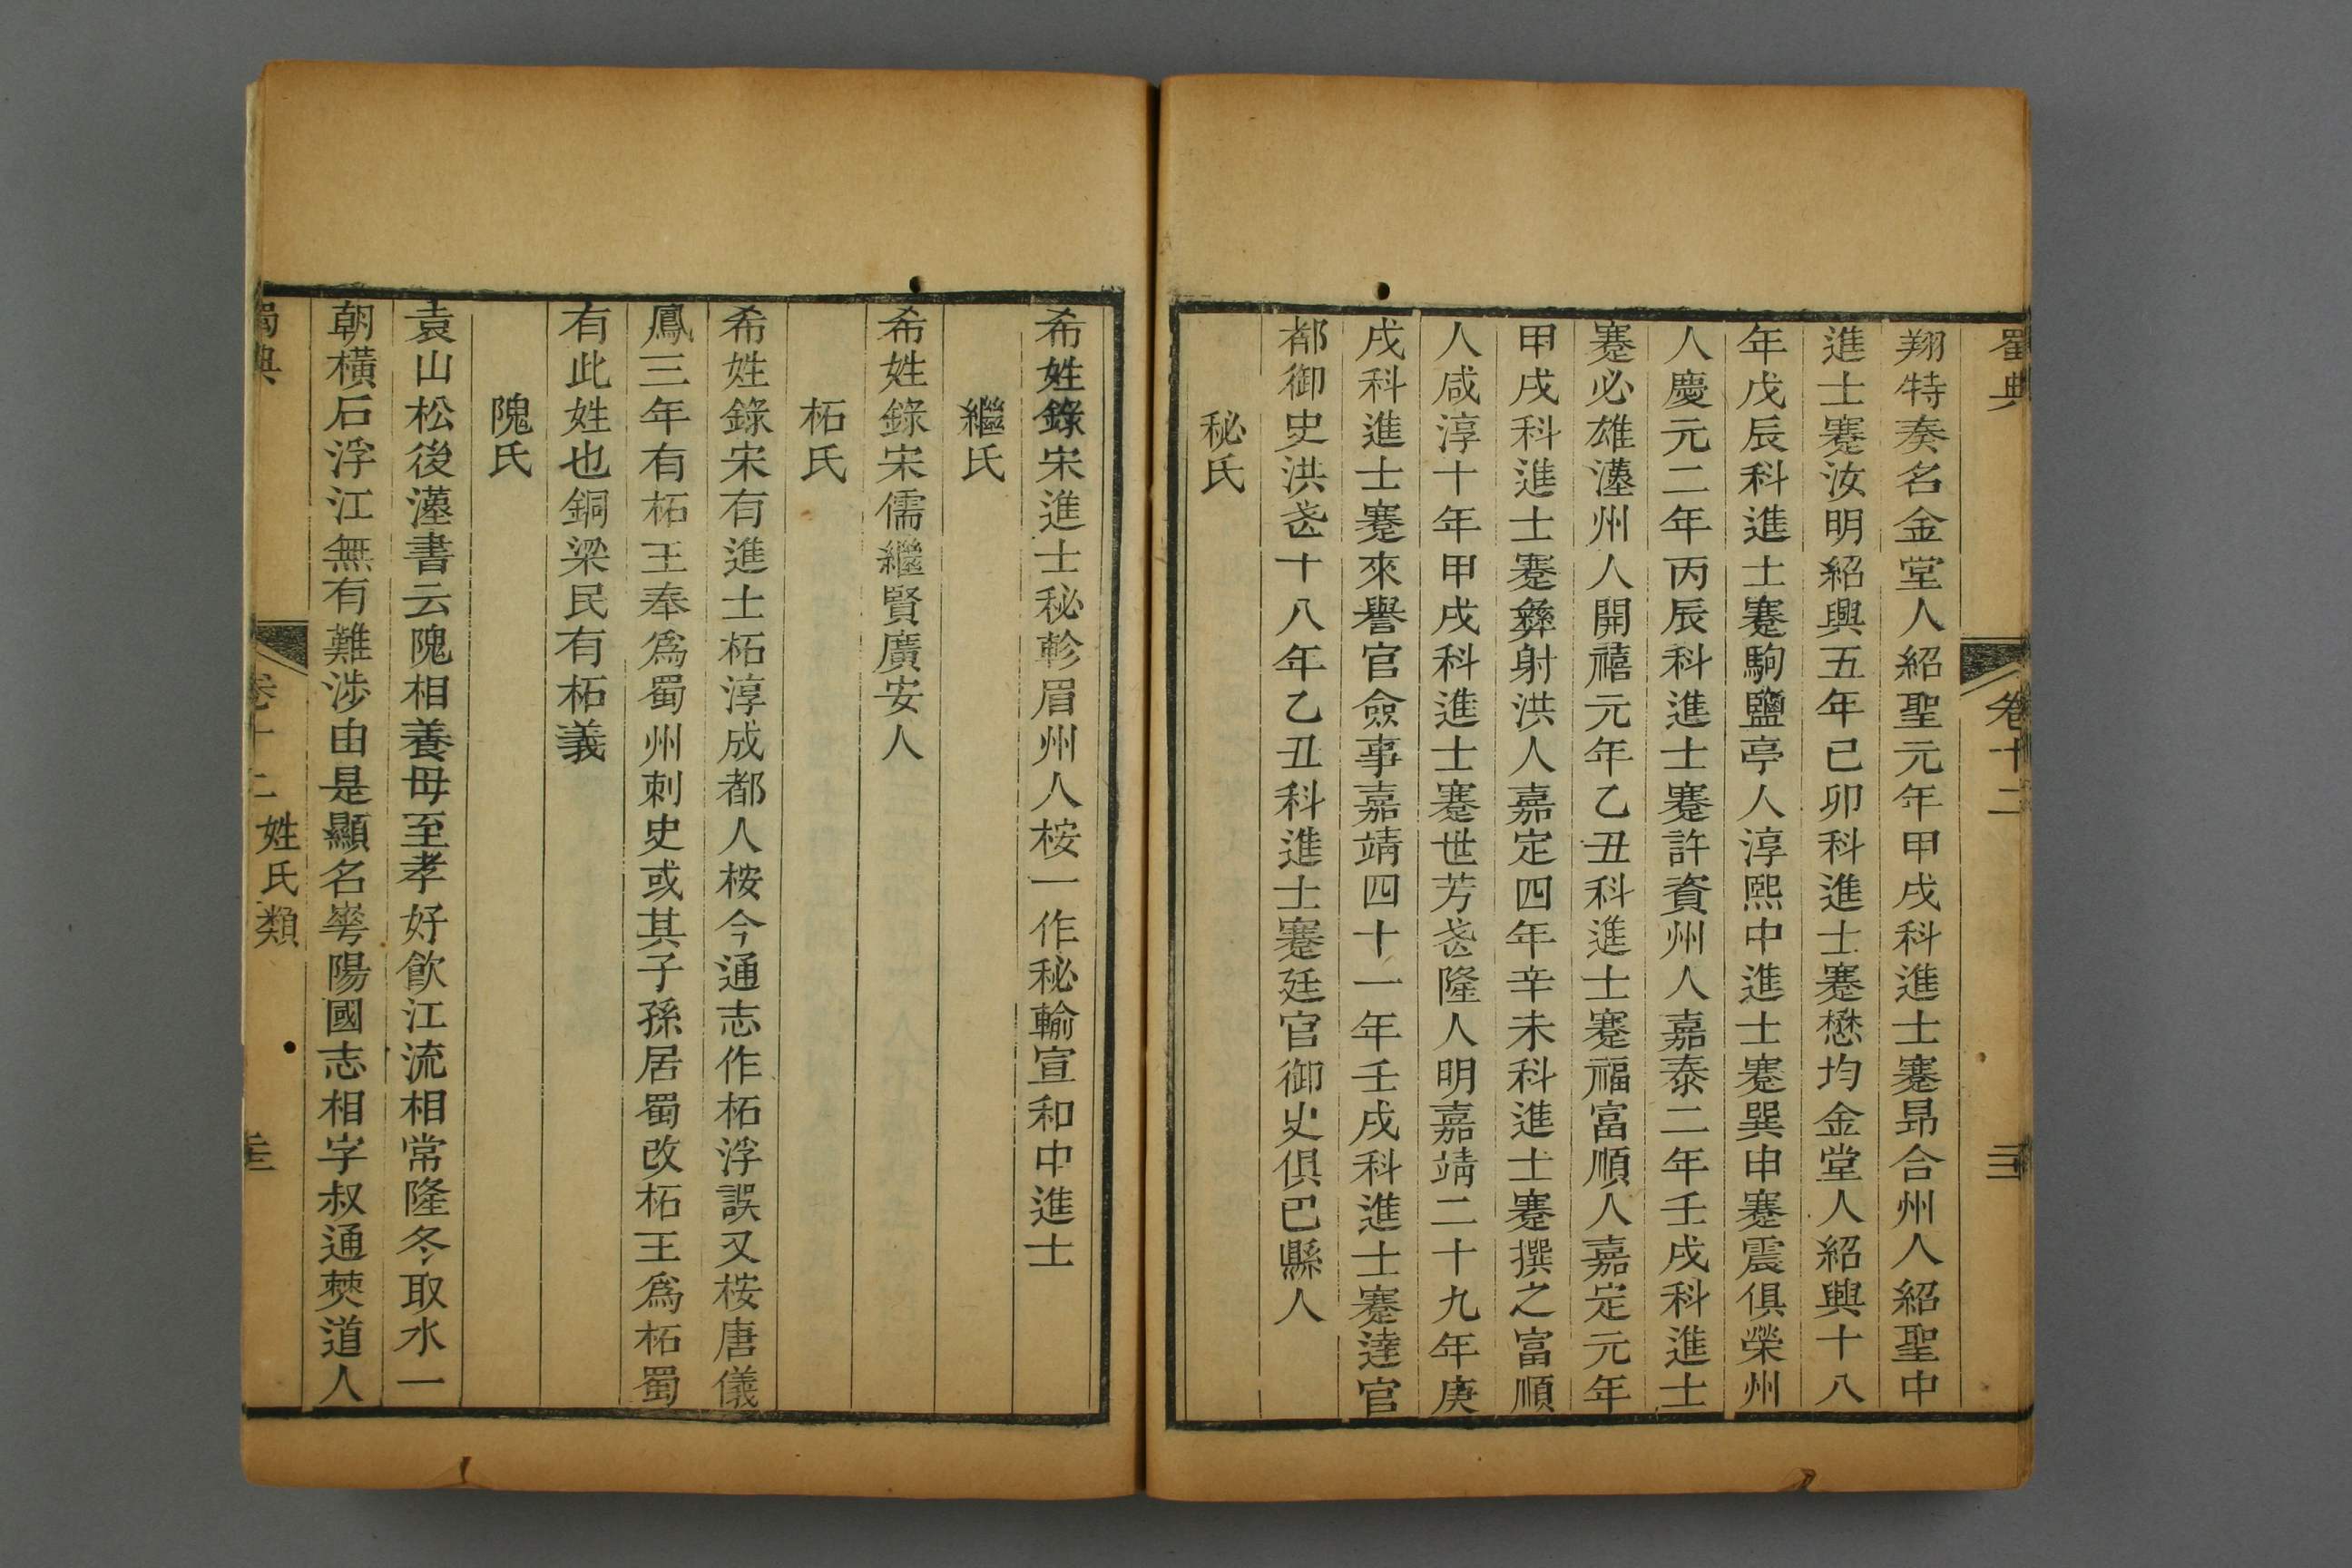 蜀典
卷十二
翔特奏名金堂人紹聖元年甲戌科進士蹇昻合州人紹聖中
進士蹇汝明紹興五年己卯科進士蹇懋均金堂人紹興十八
年戊辰科進士蹇駒鹽亭人淳熙中進士蹇巽申蹇震俱榮州
人慶元二年丙辰科進士蹇許資州人嘉泰二年壬戌科進士
蹇必雄灋州人開禧元年乙丑科進士蹇福富順人嘉定元年
甲戌科進士蹇彝射洪人嘉定四年辛未科進士蹇撰之富順
人咸淳十年甲戌科進士蹇世芳袐隆人明嘉靖二十九年庚
戌科進士蹇來譽官僉事嘉靖四十一年壬戌科進士蹇達官
都御史洪十八年乙丑科進士蹇廷官御史俱巴縣人
秘氏
希姓錄宋進士秘軫眉州人桉一作秘輸宣和中進士
繼氏
希姓錄宋儒繼賢廣安人
柘氏
希姓錄宋有進士柘淳成都人桉今通志作柘浮誤又桉唐儀
鳳三年有柘王奉爲蜀州刺史或其子孫居蜀改柘王爲柘蜀
有此姓也銅梁民有柘義
隗氏
袁山松後漢書云隗相養母至孝好飮江流相常隆冬取水一
朝橫石浮江無有難涉由是顯名崋陽國志相字叔通僰道人
蜀典
卷十二
姓氏類